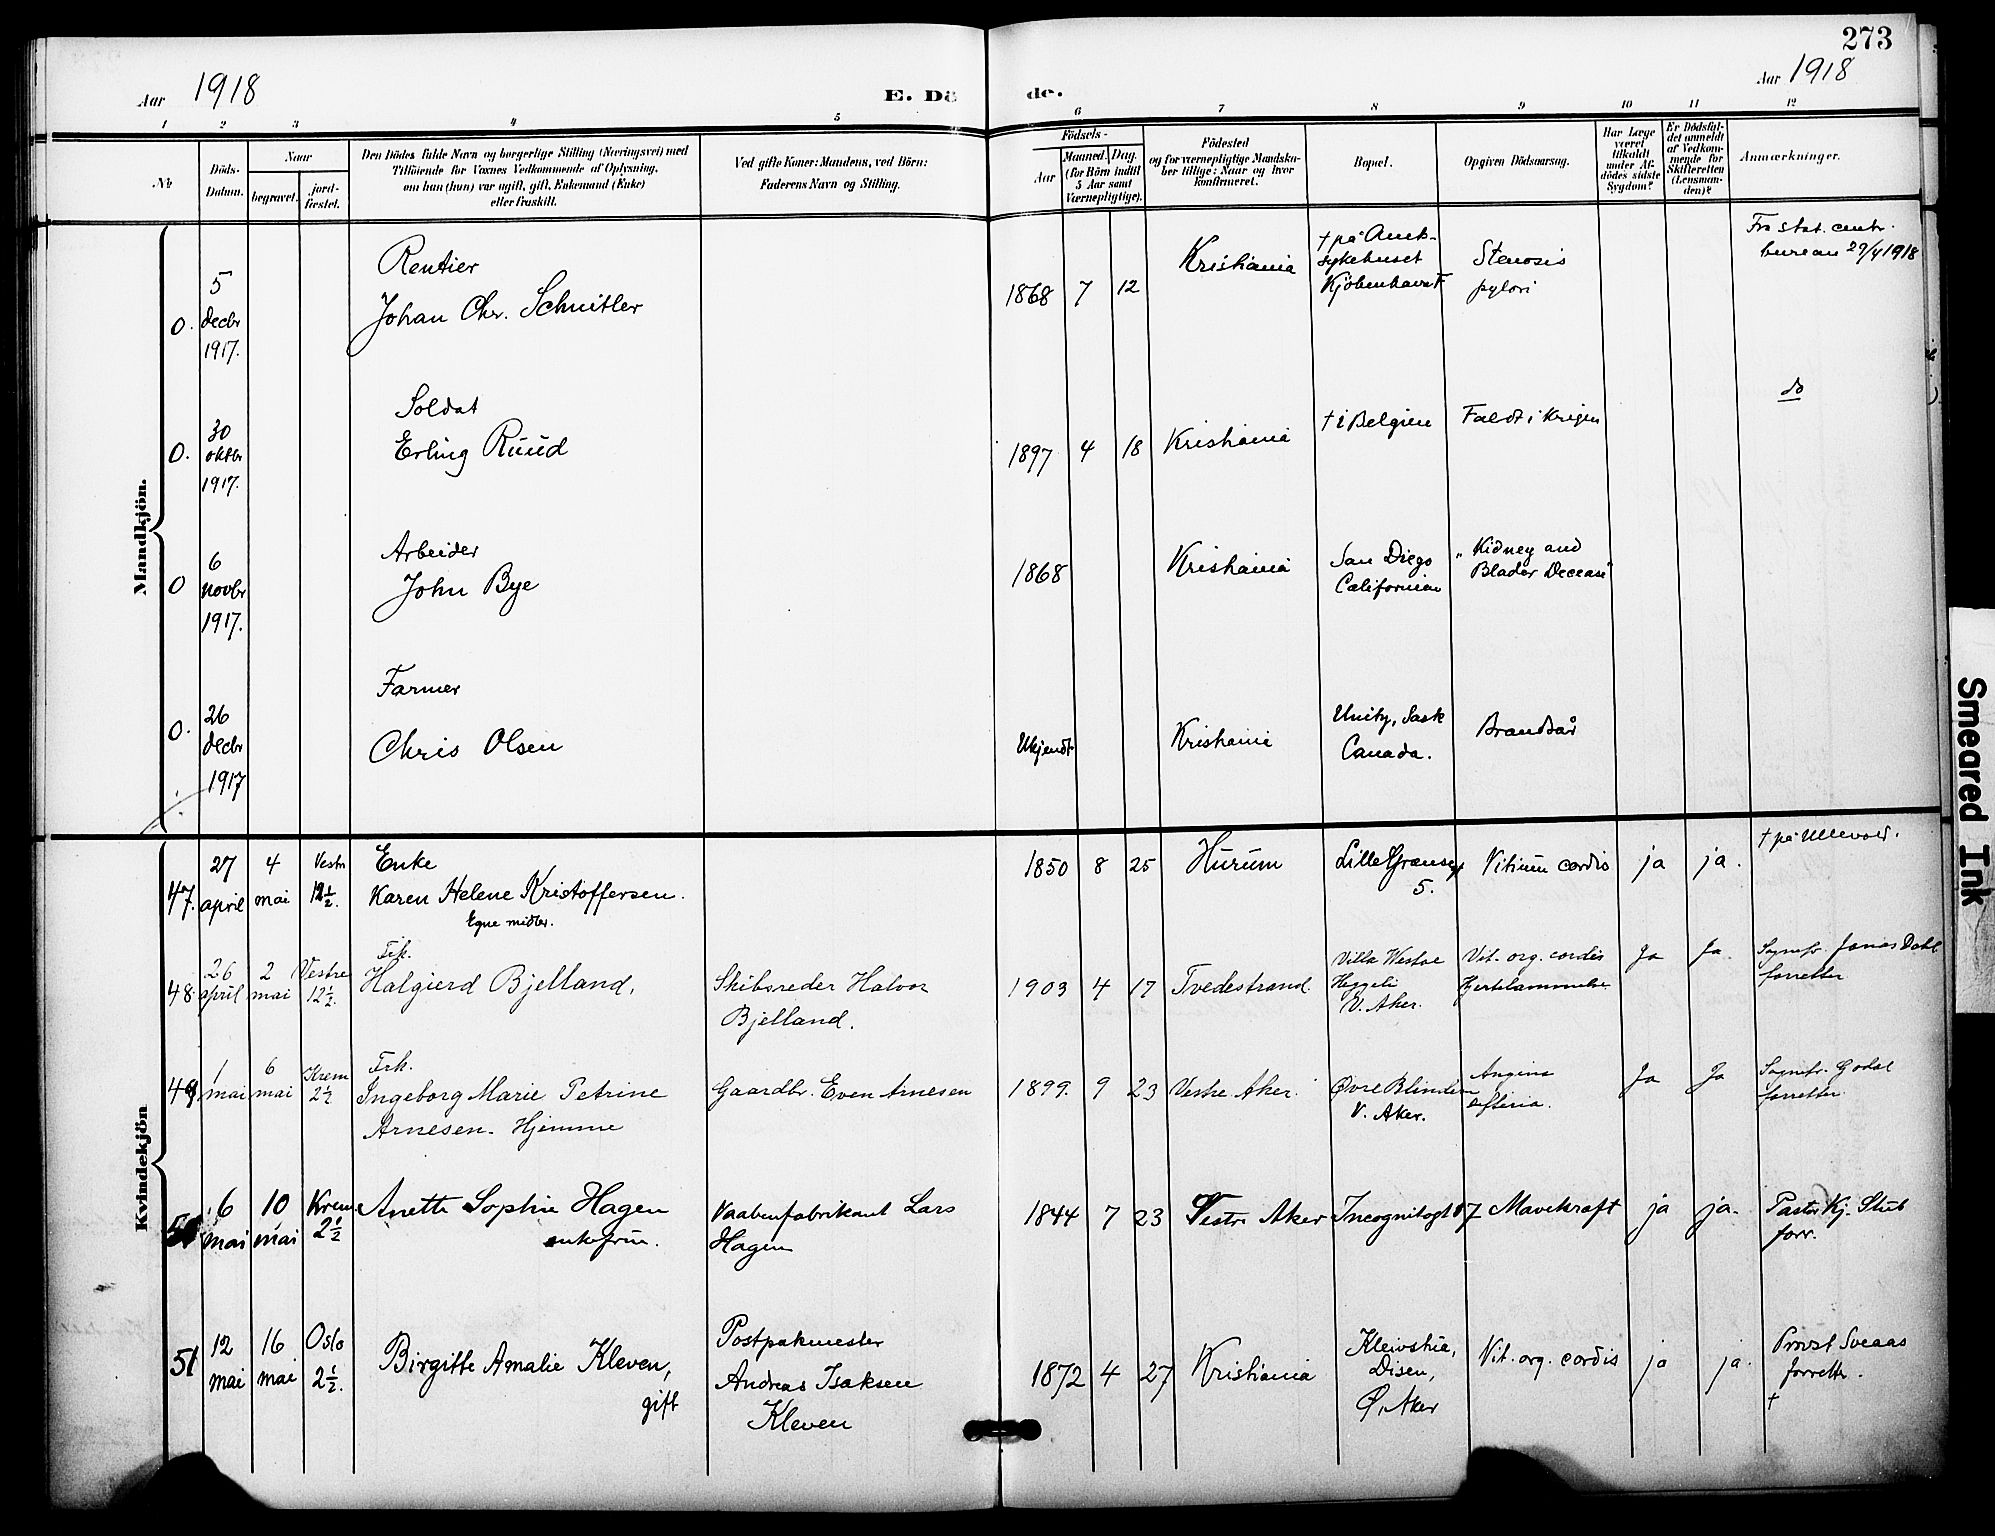 273
Aar 1918
E. Dö de.
Aar 1918
1 2 3 4 5 6 7 8 9 10 11 12
No
Döds-
Datum.
Naar
begravet.
jord-
fæstet.
Den Dödes fulde Navn og borgerlige Stilling (Næringsvei) med
Tilföiende for Voxnes Vedkommende af Oplysning,
om han (hun) var ugift, gift, Enkemand (Enke)
eller fraskilt.
Ved gifte Koner: Mandens, ved Börn:
Faderens Navn og Stilling.
Födsels-
Aar
Maaned. Dag.
(for Börn indtil
5 Aar samt
Værnepligtige).
Födested
og for værnepligtige Mandska-
ber tillige: Naar og hvor
konfirmeret.
Bopæl.
Opgiven Dödsaarsag.
Har Læge
været
tilkaldt
under Af-
dödes sidste
Sygdom?
Er Dödsfal-
det anmeldt
af Vedkom-
mende for
Skifteretten
(Lensman-
den)?
Anmærkninger.
Mandkjön.
0.
5
decbr
1917.
Rentier
Johan Chr. Schnitler
1868 7 12
Kristiania
† på Amts-
sykehuset
Kjöbenhavn
Stenosis
pylori
Fra stat. centr.
bureau 29/4 1918
0.
30
oktbr
1917.
Soldat
Erling Ruud
1897 4 18
Kristiania
† i Belgien
Faldt i Krigen
do
0
6
novbr
1917.
Arbeider
John Bye
1868
Kristiania
San Diego
Californien
"Kidney and
Blader Decease"
0.
26
decbr
1917
Farmer
Chris Olsen
Ukjendt
Kristiania
Unity, Sask
Canada.
Brandsår
Kvindekjön
47.
27
april
4
mai
Vestre
12 1/2.
Enke
Karen Helene Kristoffersen.
Egne midler.
1850 8 25
Hurum
Lille Grensegt
5.
Vitium cordis
ja
ja.
† på Ullevold.
48.
26
april
2
mai
Vestre
12 1/2.
Frk.
Halgierd Bjelland,
Skibsreder Halvor
Bjelland.
1903 4 17
Tvedestrand.
Villa Westoe
Heggeli
V. Aker.
Vit. org. cordis
Hjertelammelse
Ja
Ja.
Sognepr. Jonas Dahl
forretter
49
1
mai
6
mai
Krem
2 1/2
Frk.
Ingeborg Marie Petrine
Arnesen. Hjemme
Gaardbr. Even Arnesen
1899. 9 23
Vestre Aker.
Øvre Blindern
V. Aker.
Angina
difteria.
Ja
Ja
Sognepr. Godal
forretter.
50
6
mai
10
mai
Krem
2 1/2
Anette Sophie Hagen
enkefrue.
Vaabenfabrikant Lars
Hagen
1844 7 23
Vestre Aker
Incognitogt 17
Mavekræft
ja
ja.
Pastor Kj. Stub
forr.
51
12
mai
16
mai
Oslo
2 1/2.
Birgitte Amalie Kleven,
gift
Postpakmester
Andreas Isaksen
Kleven
1872 4 27
Kristiania
Kleivstue,
Disen,
Ø. Aker
Vit. org. cordis
ja
ja.
Provst Sveaas
forrettr.
†
Smeared Ink